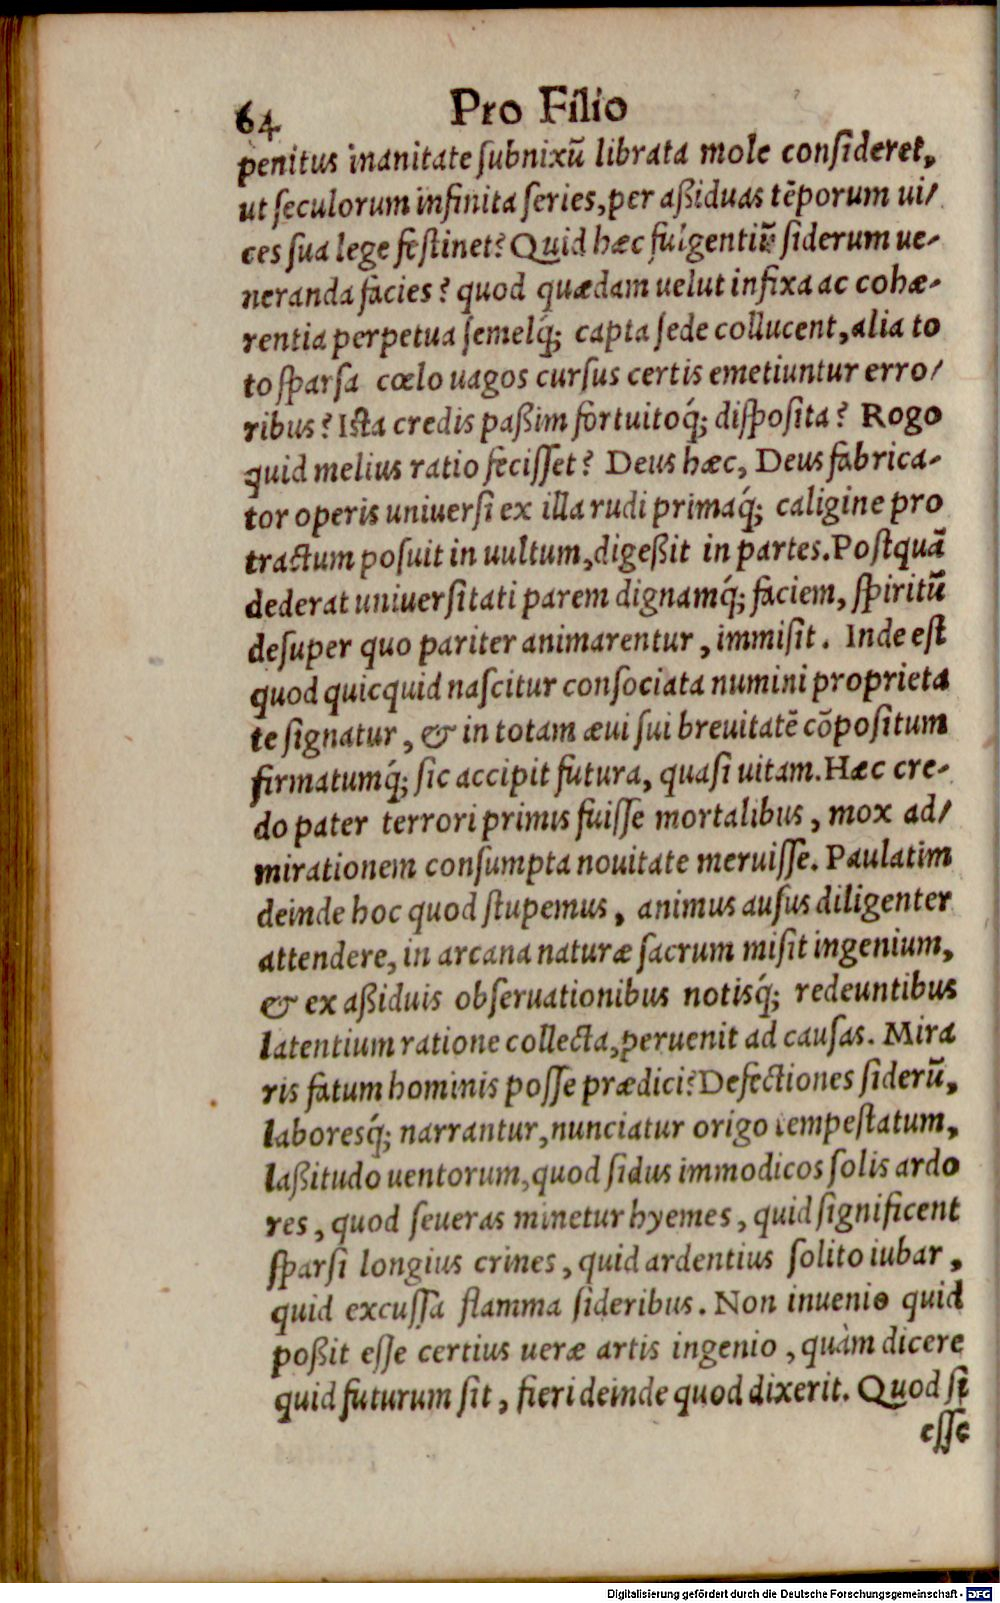 64 Pro Filio
penitus inanitate subnixũ librata mole consideret,
ut seculorum infinita series, per aßiduas tẽporum ui/
ces sua lege festinet? Quid hæc fulgentiũ siderum ue-
neranda facies? quod quædam uelut infixa ac cohæ-
rentia perpetua semelq́; capta sede collucent, alia to
to sparsa cœlo uagos cursus certis emetiuntur erro/
ribus? Ista credis paßim fortuitoq́; disposita? Rogo
quid melius ratio fecisset? Deus hæc, Deus fabrica-
tor operis uniuersi ex illa rudi primaq́; caligine pro
tractum posuit in uultum, digeßit in partes. Postquã
dederat uniuersitati parem dignamq́; faciem, spiritũ
desuper quo pariter animarentur, immisit. Inde est
quod quicquid nascitur consociata numini proprieta
te signatur, & in totam æui sui breuitatẽ cõpositum
firmatumq́; sic accipit futura, quasi uitam. Hæc cre-
do pater terrori primis fuisse mortalibus, mox ad/
mirationem consumpta nouitate meruisse. Paulatim
deinde hoc quod stupemus, animus ausus diligenter
attendere, in arcana naturæ sacrum misit ingenium,
& ex aßiduis obseruationibus notisq́; redeuntibus
latentium ratione collecta, peruenit ad causas. Mira
ris fatum hominis posse prædici? Defectiones siderũ,
laboresq́; narrantur, nunciatur origo tempestatum,
laßitudo uentorum, quod sidus immodicos solis ardo
res, quod seueras minetur hyemes, quid significent
sparsi longius crines, quid ardentius solito iubar,
quid excussa flamma sideribus. Non inuenio quid
poßit esse certius ueræ artis ingenio, quàm dicere
quid futurum sit, fieri deinde quod dixerit. Quod si
esse
Digitalisierung gefördert durch die Deutsche Forschungsgemeinschaft - DFG